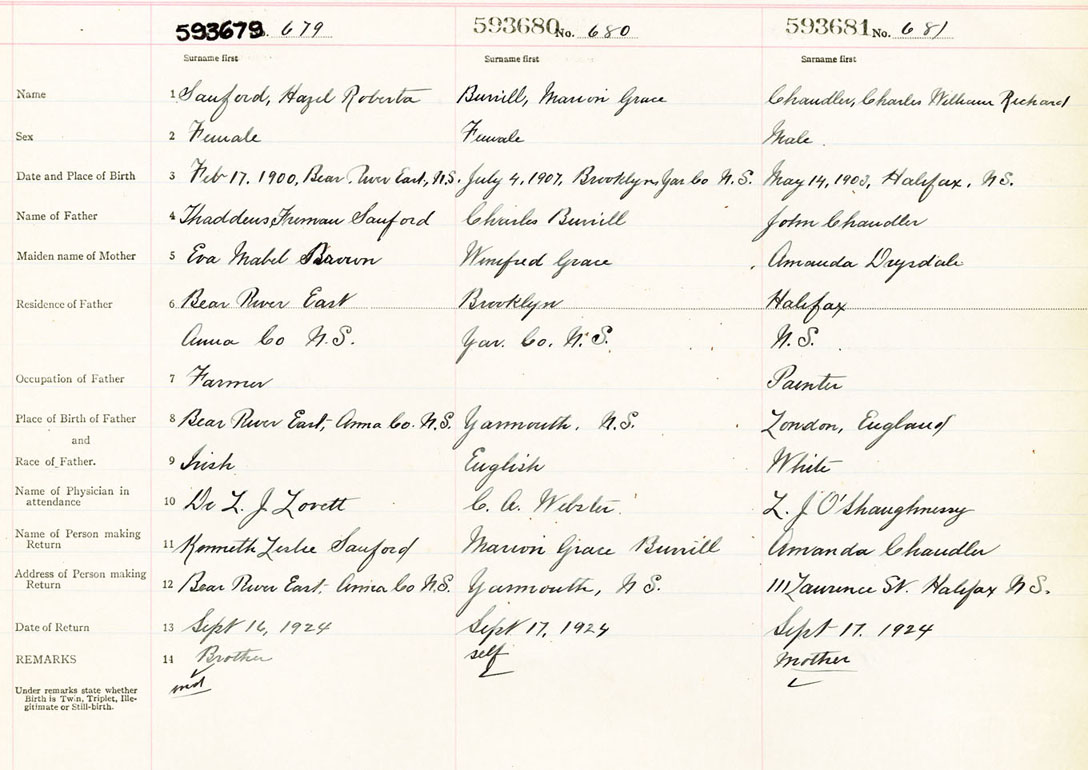 593679. 679 593680 No. 680 593681 No. 681
Surname first Surname first Surname first
Name 1 Sanford, Hazel Roberta Burrill, Marion Grace Chandler, Charles William Richard
Sex 2 Female Female Male.
Date and Place of Birth 3 Feb 17. 1900, Bear River East, N.S. July 4, 1907, Brooklyn, Yar Co N.S. May 14, 1903, Halifax, N.S.
Name of Father 4 Thaddeus Freman Sanford Charles Burrill John Chandler
Maiden name of Mother 5 Eva Mabel Brown Winifred Grace Amanda Drysdale
Residence of Father 6 Bear River East Brooklyn Halifax
Anna Co N.S. Yar. Co. N.S. N.S.
Occupation of Father 7 Farmer Painter
Place of Birth of Father 8 Bear River East, Anna Co. N.S. Yarmouth, N.S. London, England
and
Race of Father. 9 Irish English White
Name of Physician in
attendance 10 Dr L. J. Lovett C. A. Webster L. J O'Shaughnessy
Name of Person making
Return 11 Kenneth Leslie Sanford Marion Grace Burrill Amanda Chandler
Address of Person making
Return 12 Bear River East, Anna Co N.S. Yarmouth, N.S. 111 Lawrence St. Halifax N.S.
Date of Return 13 Sept 16, 1924 Sept 17, 1924 Sept 17. 1924
REMARKS 14 Brother self mother
Under remarks state whether
Birth is Twin, Triplet, Ille-
gitimate or Still-birth.